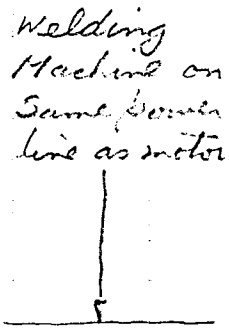 Welding
Machine on
Same power
line as motor